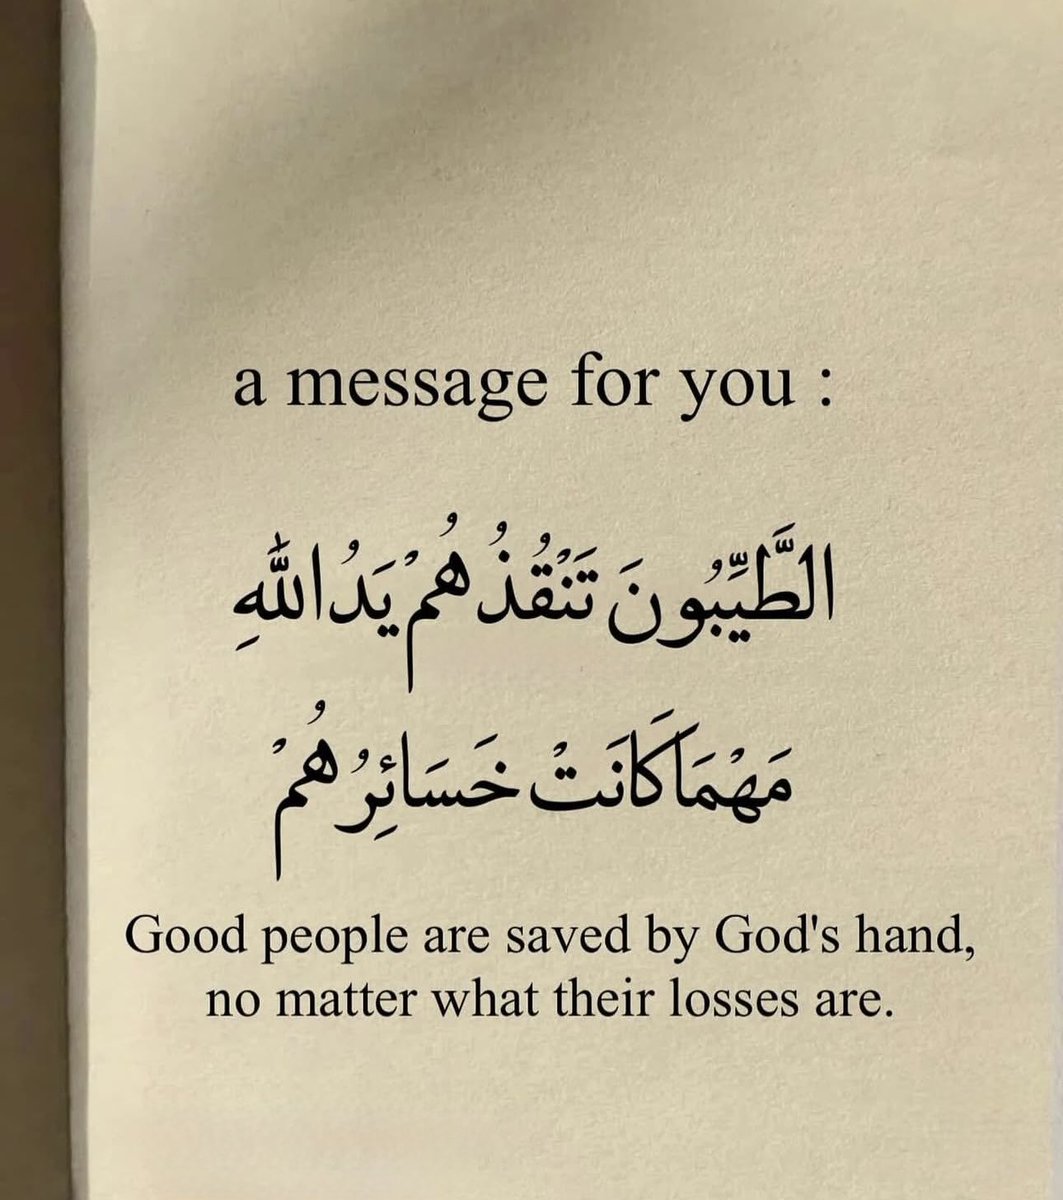 a message for you :
الطَّيِّبُونَ تَنْقُذُهُمْ يَدُ اللَّهِ
مَهْمَا كَانَتْ خَسَائِرُهُمْ
Good people are saved by God's hand,
no matter what their losses are.